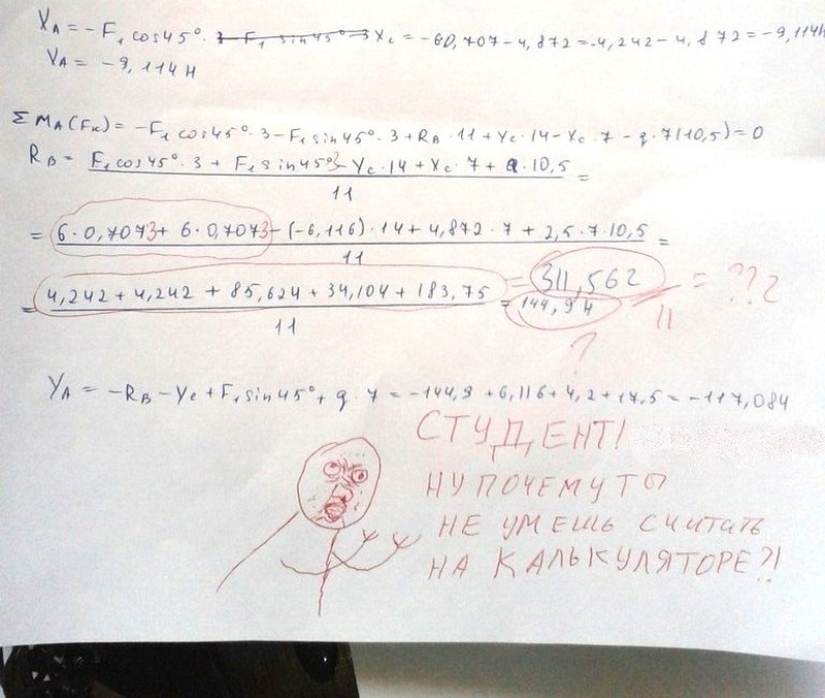 XA = -F1 cos45°. 3 - F1 sin45°·3 Xc = -60,707 - 4,872 = -4,242 - 4,872 = -9,114H
VA = -9,114H
ΣMA(Fк) = -F1 cos45°·3 - F1 sin45°·3 + RB·11 + Yc·14 - Xc·7 - q·7(10,5) = 0
RB = F1 cos45°·3 + F1 sin45°3 - Yc·14 + Xc·7 + q·10,5 =
11
= 6·0,7073 + 6·0,7073 - (-6,116)·14 + 4,872·7 + 2,5·7·10,5 =
11
= 4,242 + 4,242 + 85,624 + 34,104 + 183,75 = 311,562 = ???
11 = 144,9H 11
?
YA = -RB - Yc + F1 sin45° + q·7 = -144,9 + 6,116 + 4,2 + 17,5 = -117,084
СТУДЕНТ!
НУ ПОЧЕМУ ТЫ
НЕ УМЕШЬ СЧИТАТЬ
НА КАЛЬКУЛЯТОРЕ?!